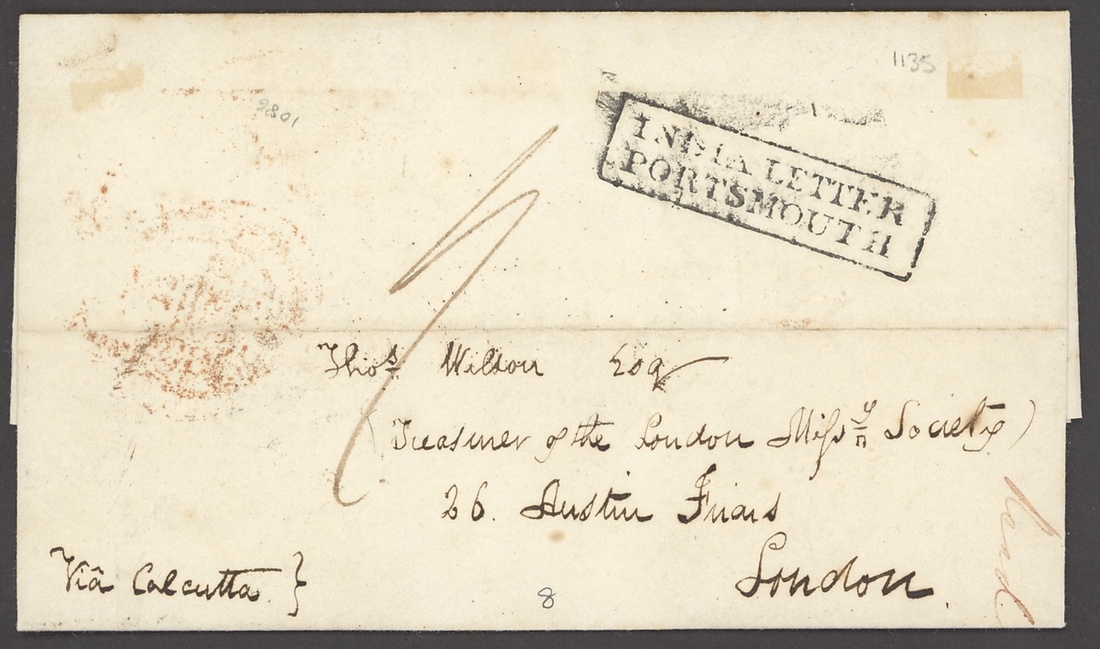 1135
9801
INDIA LETTER
PORTSMOUTH
Thos Wilson Esq
(Treasurer of the London Missy n Society)
26. Austin Friars
London.
Via Calcutta }
8